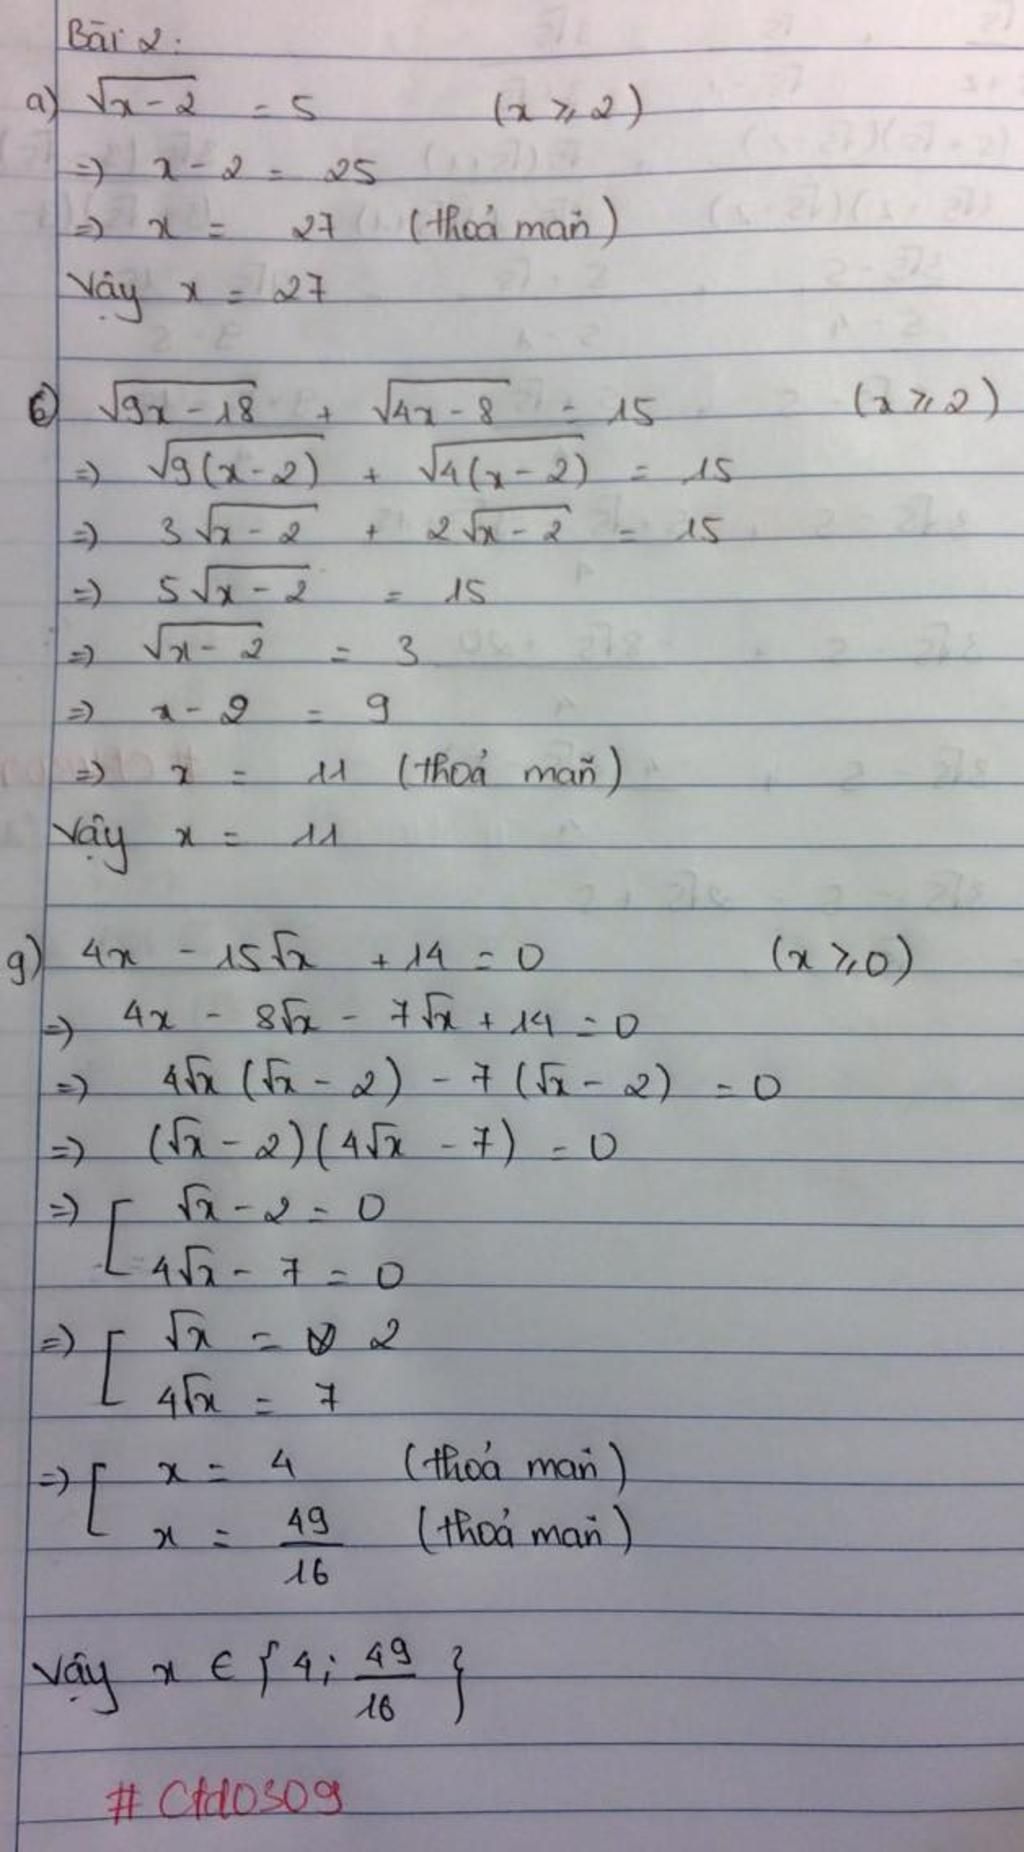 Bài 2:
a) √(x-2) = 5 (x ⩾ 2)
=> x - 2 = 25
=> x = 27 (thoả mãn)
Vậy x = 27
c) √(9x-18) + √(4x-8) = 15 (x ⩾ 2)
=> √(9(x-2)) + √(4(x-2)) = 15
=> 3√(x-2) + 2√(x-2) = 15
=> 5√(x-2) = 15
=> √(x-2) = 3
=> x - 2 = 9
=> x = 11 (thoả mãn)
Vậy x = 11
g) 4x - 15√x + 14 = 0 (x ⩾ 0)
=> 4x - 8√x - 7√x + 14 = 0
=> 4√x (√x - 2) - 7 (√x - 2) = 0
=> (√x - 2)(4√x - 7) = 0
=> [ √x - 2 = 0
4√x - 7 = 0
=> [ √x = 2
4√x = 7
=> [ x = 4 (thoả mãn)
x = 49/16 (thoả mãn)
Vậy x ∈ {4; 49/16}
# Ctd0309